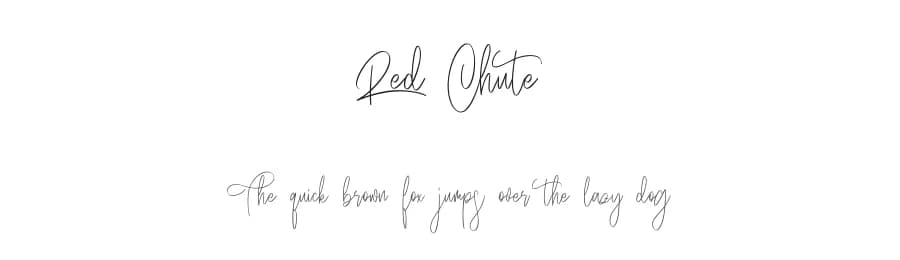 Red Chute
The quick brown fox jumps over the lazy dog